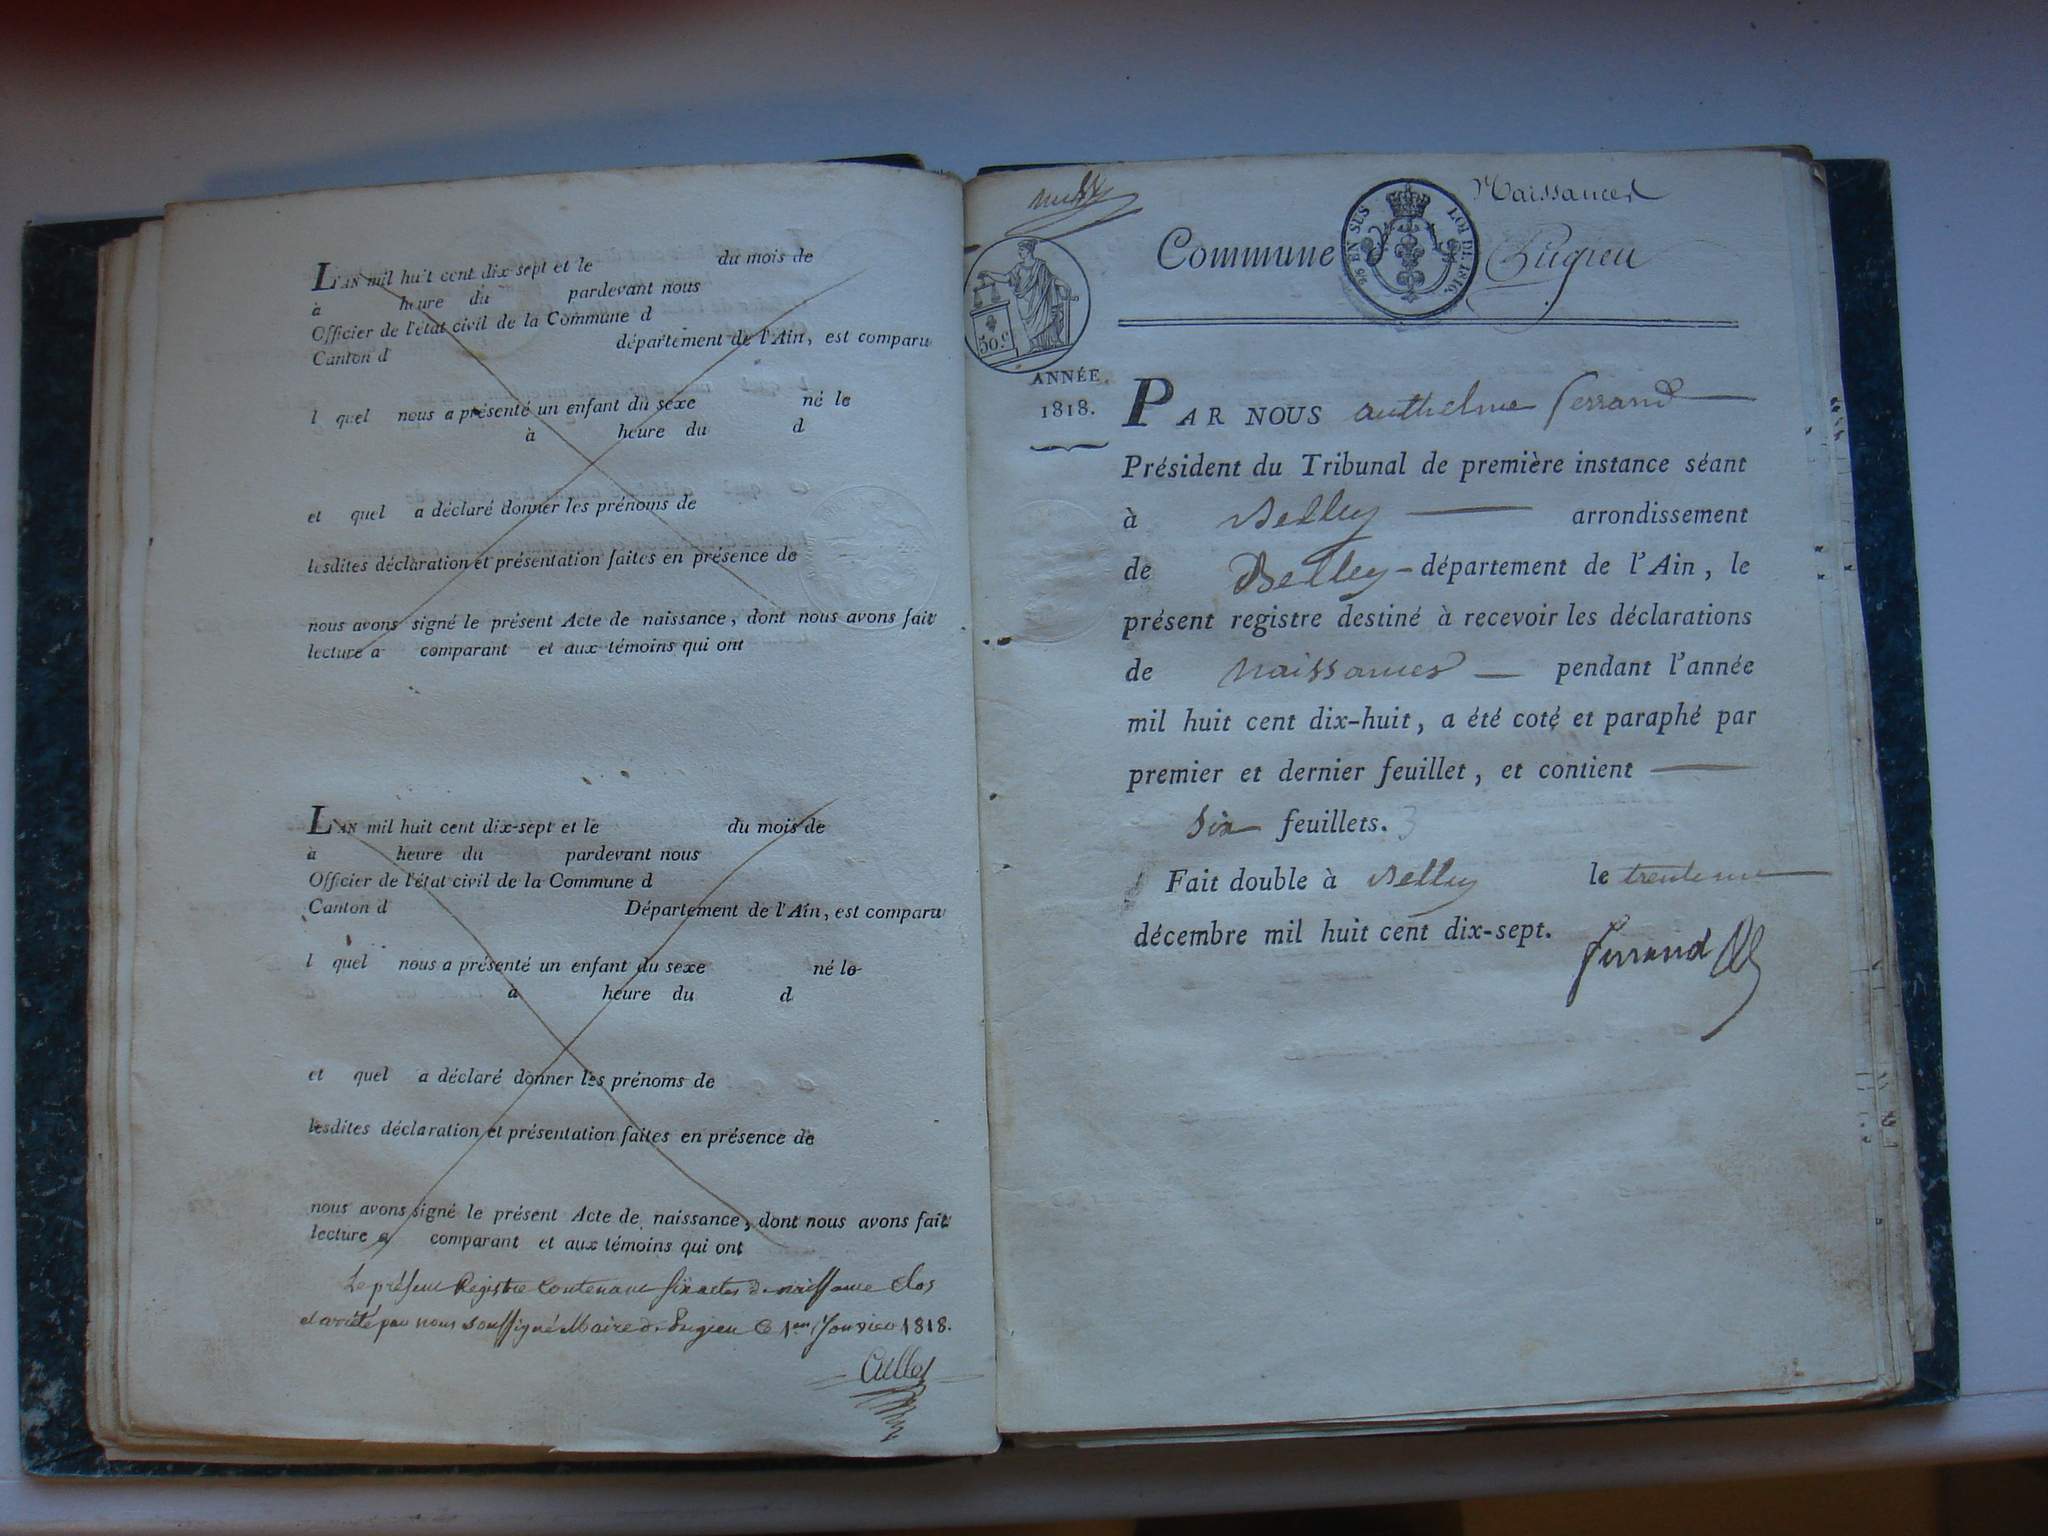 L'AN mil huit cent dix-sept et le du mois de
à heure du pardevant nous
Officier de l'état civil de la Commune d
Canton d département de l'Ain, est comparu
l quel nous a présenté un enfant du sexe né le
à heure du d
et quel a déclaré donner les prénoms de
lesdites déclaration et présentation faites en présence de
nous avons signé le présent Acte de naissance, dont nous avons fait
lecture a comparant et aux témoins qui ont
L'AN mil huit cent dix-sept et le du mois de
à heure du pardevant nous
Officier de l'état civil de la Commune d
Canton d Département de l'Ain, est comparu
l quel nous a présenté un enfant du sexe né le
à heure du d
et quel a déclaré donner les prénoms de
lesdites déclaration et présentation faites en présence de
nous avons signé le présent Acte de naissance, dont nous avons fait
lecture a comparant et aux témoins qui ont
Le présent Registre contenant six actes de naissance clos
et arrêté par nous soussigné Maire de Pugieu le 1er Janvier 1818.
Cullet
Naissances
Commune Pugieu
EN SUS LOI DE 1816.
50.c
ANNÉE
1818.
PAR NOUS anthelme ferrand
Président du Tribunal de première instance séant
à Belley arrondissement
de Belley département de l'Ain, le
présent registre destiné à recevoir les déclarations
de naissances pendant l'année
mil huit cent dix-huit, a été coté et paraphé par
premier et dernier feuillet, et contient
Six feuillets. 3
Fait double à Belley le trente un
décembre mil huit cent dix-sept.
ferrand